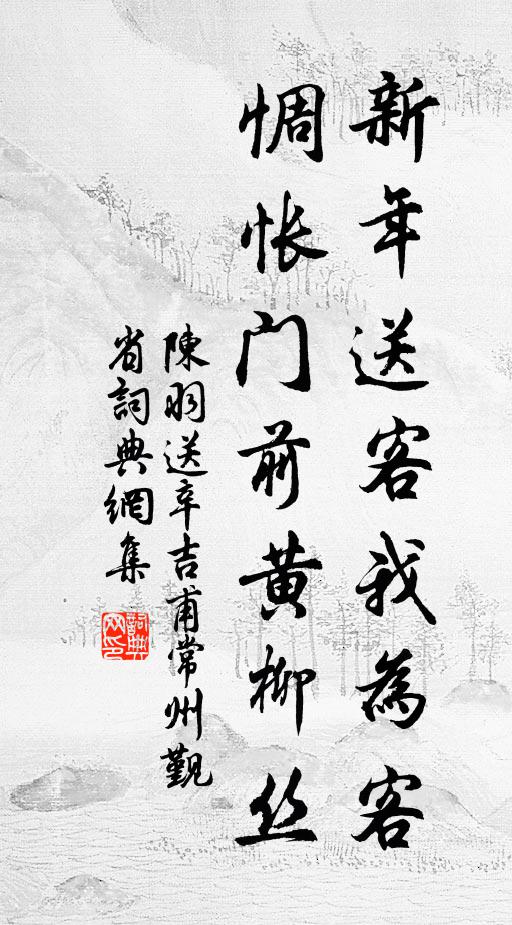 新年送客我為客
惆怅门前黄柳丝
陳羽送辛吉甫常州觐
省詞典網集
詞典
网印